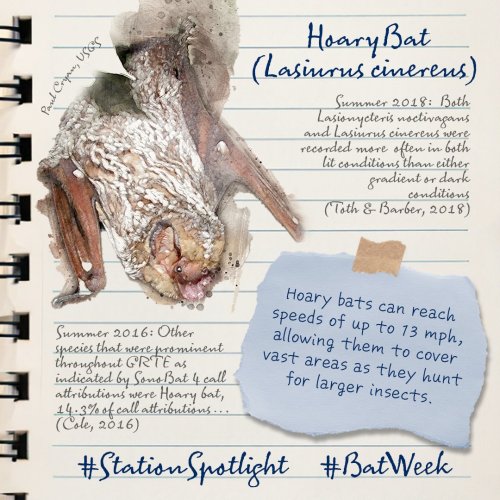 Hoary Bat
(Lasiurus cinereus)
Paul Cryan, USGS
Summer 2018: Both
Lasionycteris noctivagans
and Lasiurus cinereus were
recorded more often in both
lit conditions than either
gradient or dark
conditions
(Toth & Barber, 2018)
Hoary bats can reach
speeds of up to 13 mph,
allowing them to cover
vast areas as they hunt
for larger insects.
Summer 2016: Other
species that were prominent
throughout GRTE as
indicated by SonoBat 4 call
attributions were Hoary bat,
14.3% of call attributions...
(Cole, 2016)
#StationSpotlight #BatWeek